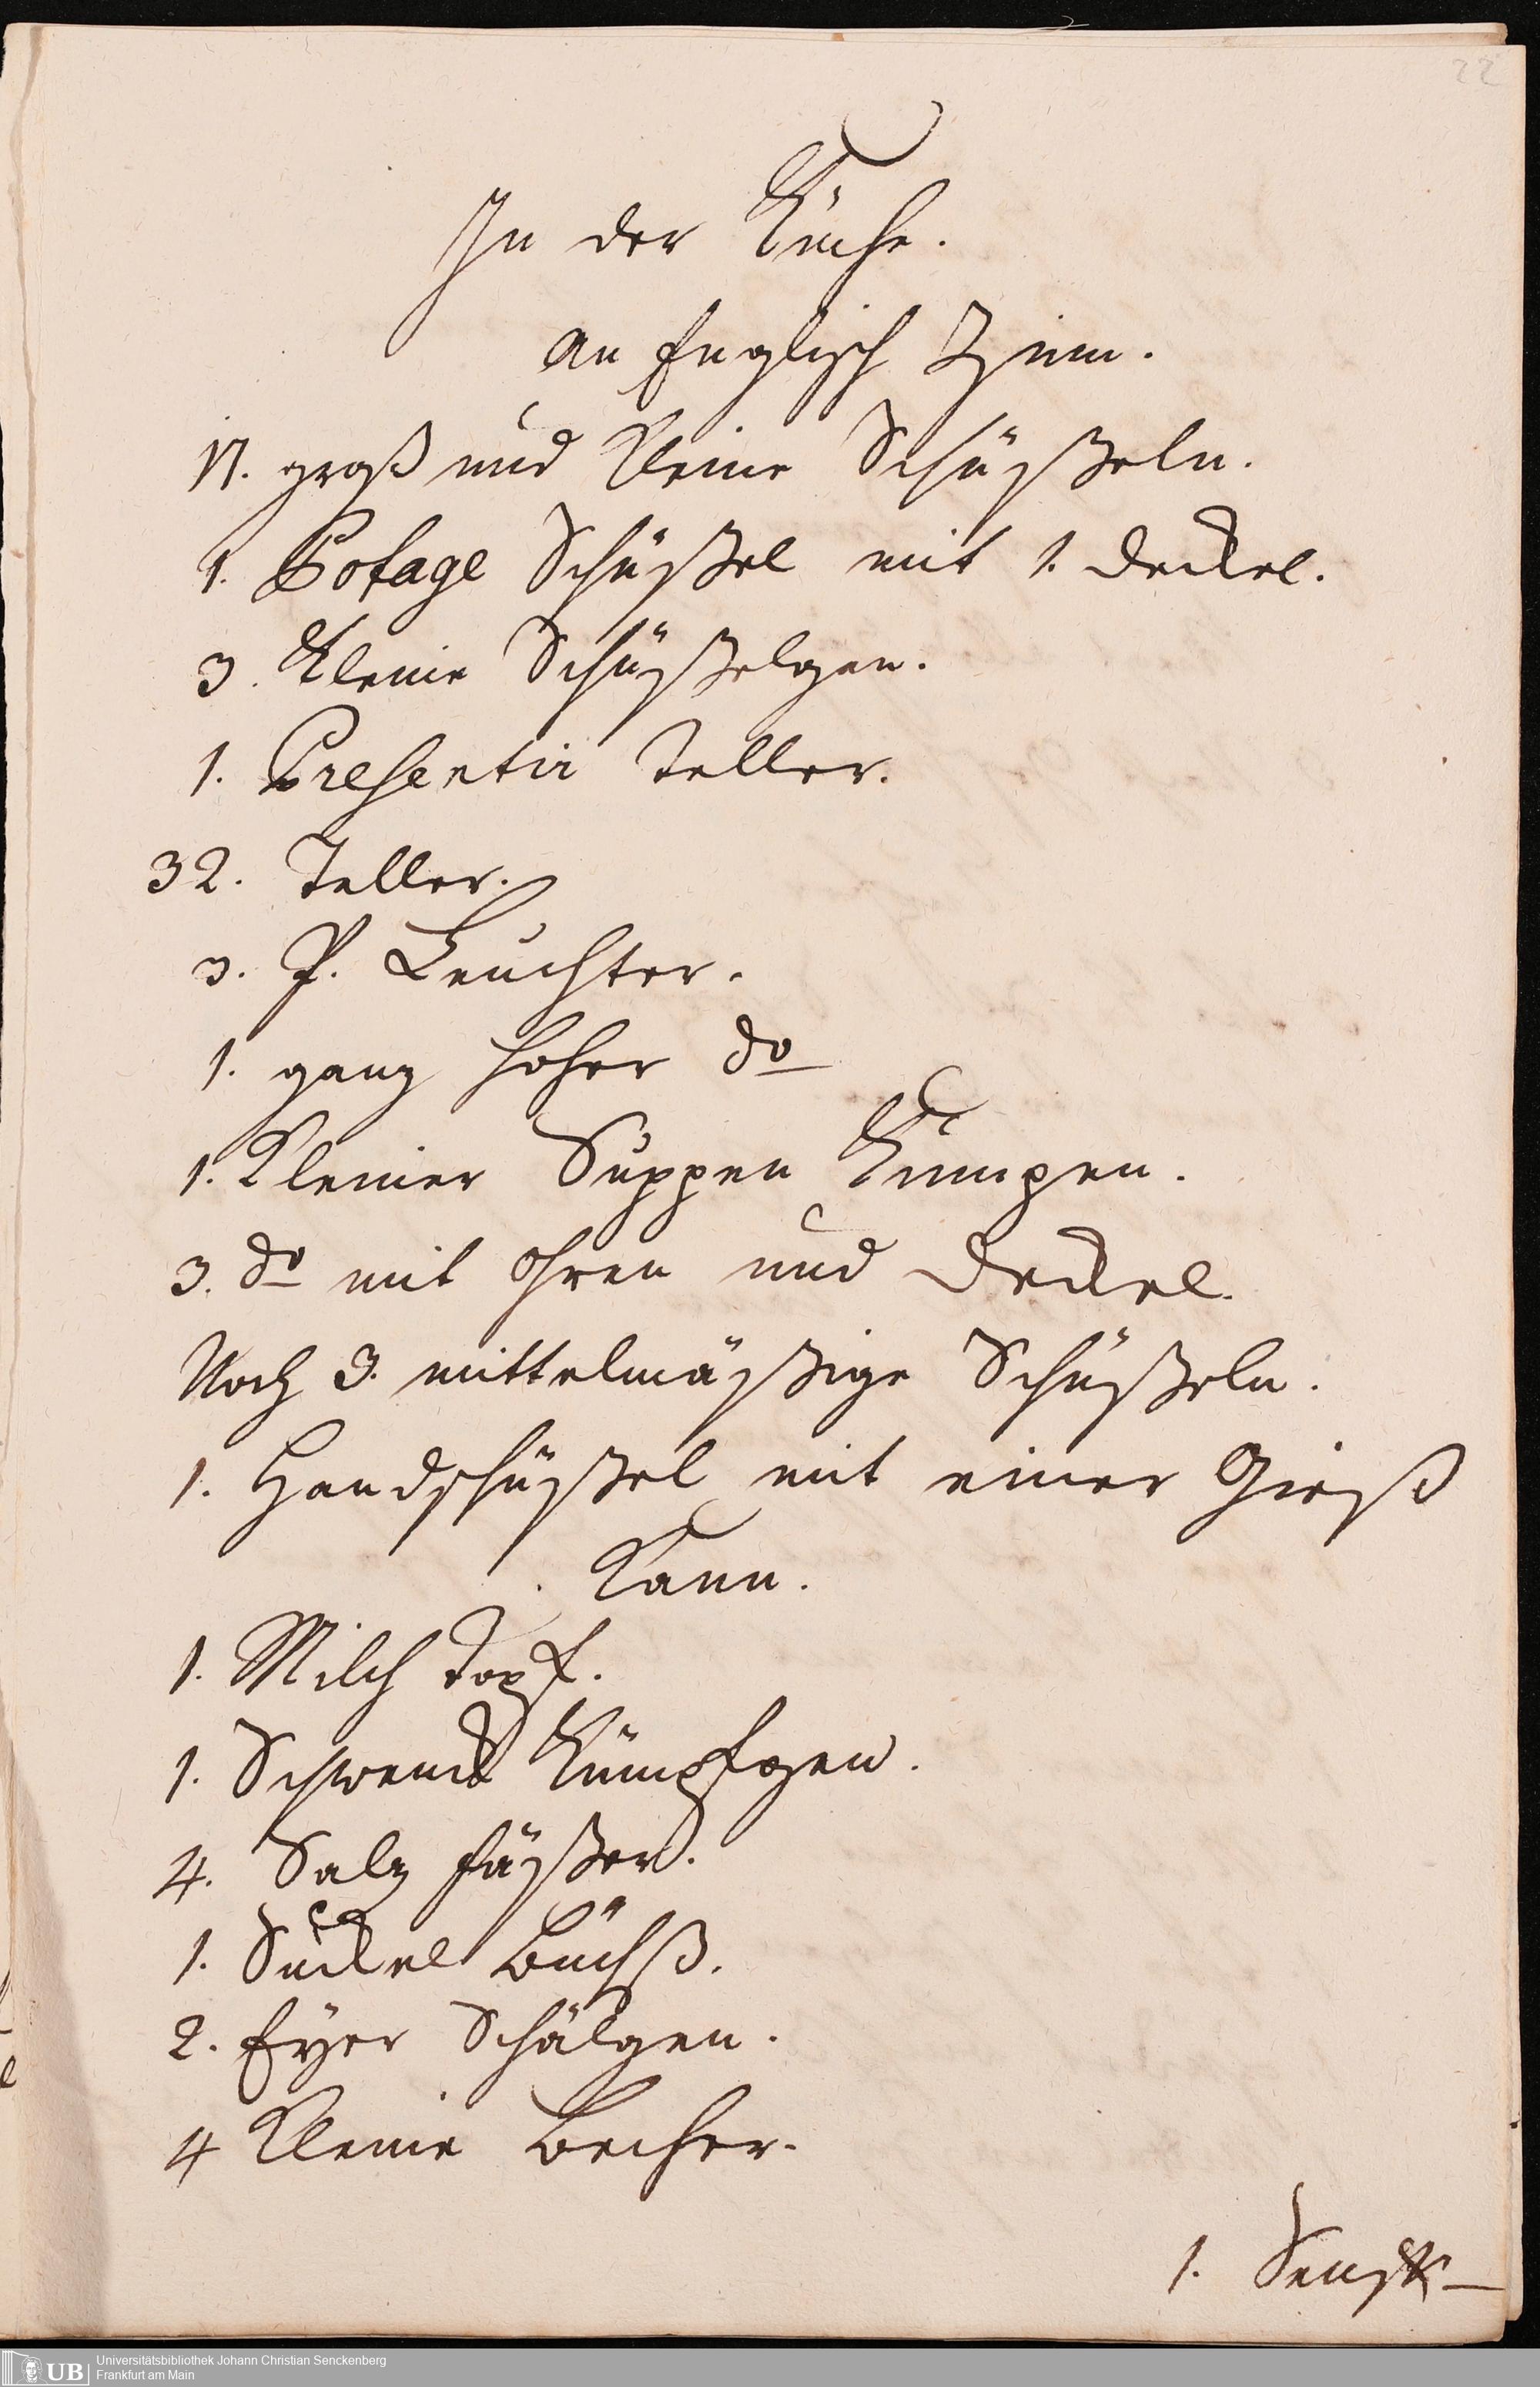 22
In der Küche.
an Englisch Zinn.
17. groß und kleine Schüßeln.
1. Potage Schüßel mit 1. Deckel.
3. kleine Schüßelgen.
1. Presentir Teller.
32. Teller.
3. P. Leuchter.
1. ganz hoher do
1. kleiner Suppen Kumpen.
3. do mit Ohren und Deckel.
Noch 3. mittelmäßige Schüßeln.
1. Handschüßel mit einer Gieß
Kann.
1. Milch Topf.
1. Schwenck Kümpfgen.
4. Saltz fäßer.
1. Büchß.
2. Eyer Schälgen.
4 kleine Becher.
1.
UB
Universitätsbibliothek Johann Christian Senckenberg
Frankfurt am Main